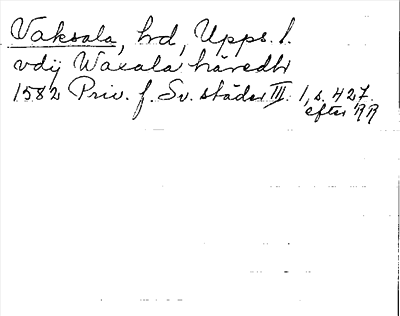 Vaksala, hd, Upps. l.
vdij Waxala häredh
1582 Priv. f. Sv. städer III: 1, s. 427.
efter RR